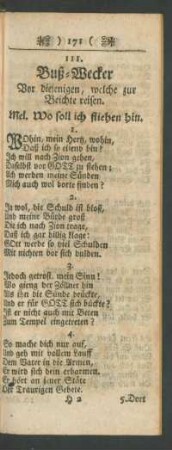 ) 171 (
III.
Buß-Wecker
Vor diejenigen, welche zur
Beichte reisen.
Mel. Wo soll ich fliehen hin.
1.
WOhin, mein Hertz, wohin,
Daß ich so ebend bin?
Ich will nach Zion gehen,
Daselbst vor GOTT zu stehen;
Ach werden meine Sünden
Mich auch wol dorte finden?
2.
Ja wol, die Schuld ist bloß,
Und meine Bürde groß
Die ich nach Zion trage,
Daß ich gar billig klage!
GOtt werde so viel Schulden
Mit nichten vor sich dulden.
3.
Jedoch getrost, mein Sinn!
Wo gieng der Zöllner hin
Als ihn die Sünde drückte,
Und er für GOTT sich bückte?
Ist er nicht auch mit Beten
Zum Tempel eingetreten?
4.
So mache dich nur auf,
Und geh mit vollem Lauff
Dem Vater in die Armen,
Er wird sich dein erbarmen,
Er hört an jener Stäte
Der Traurigen Gebete.
H 2 5. Dort